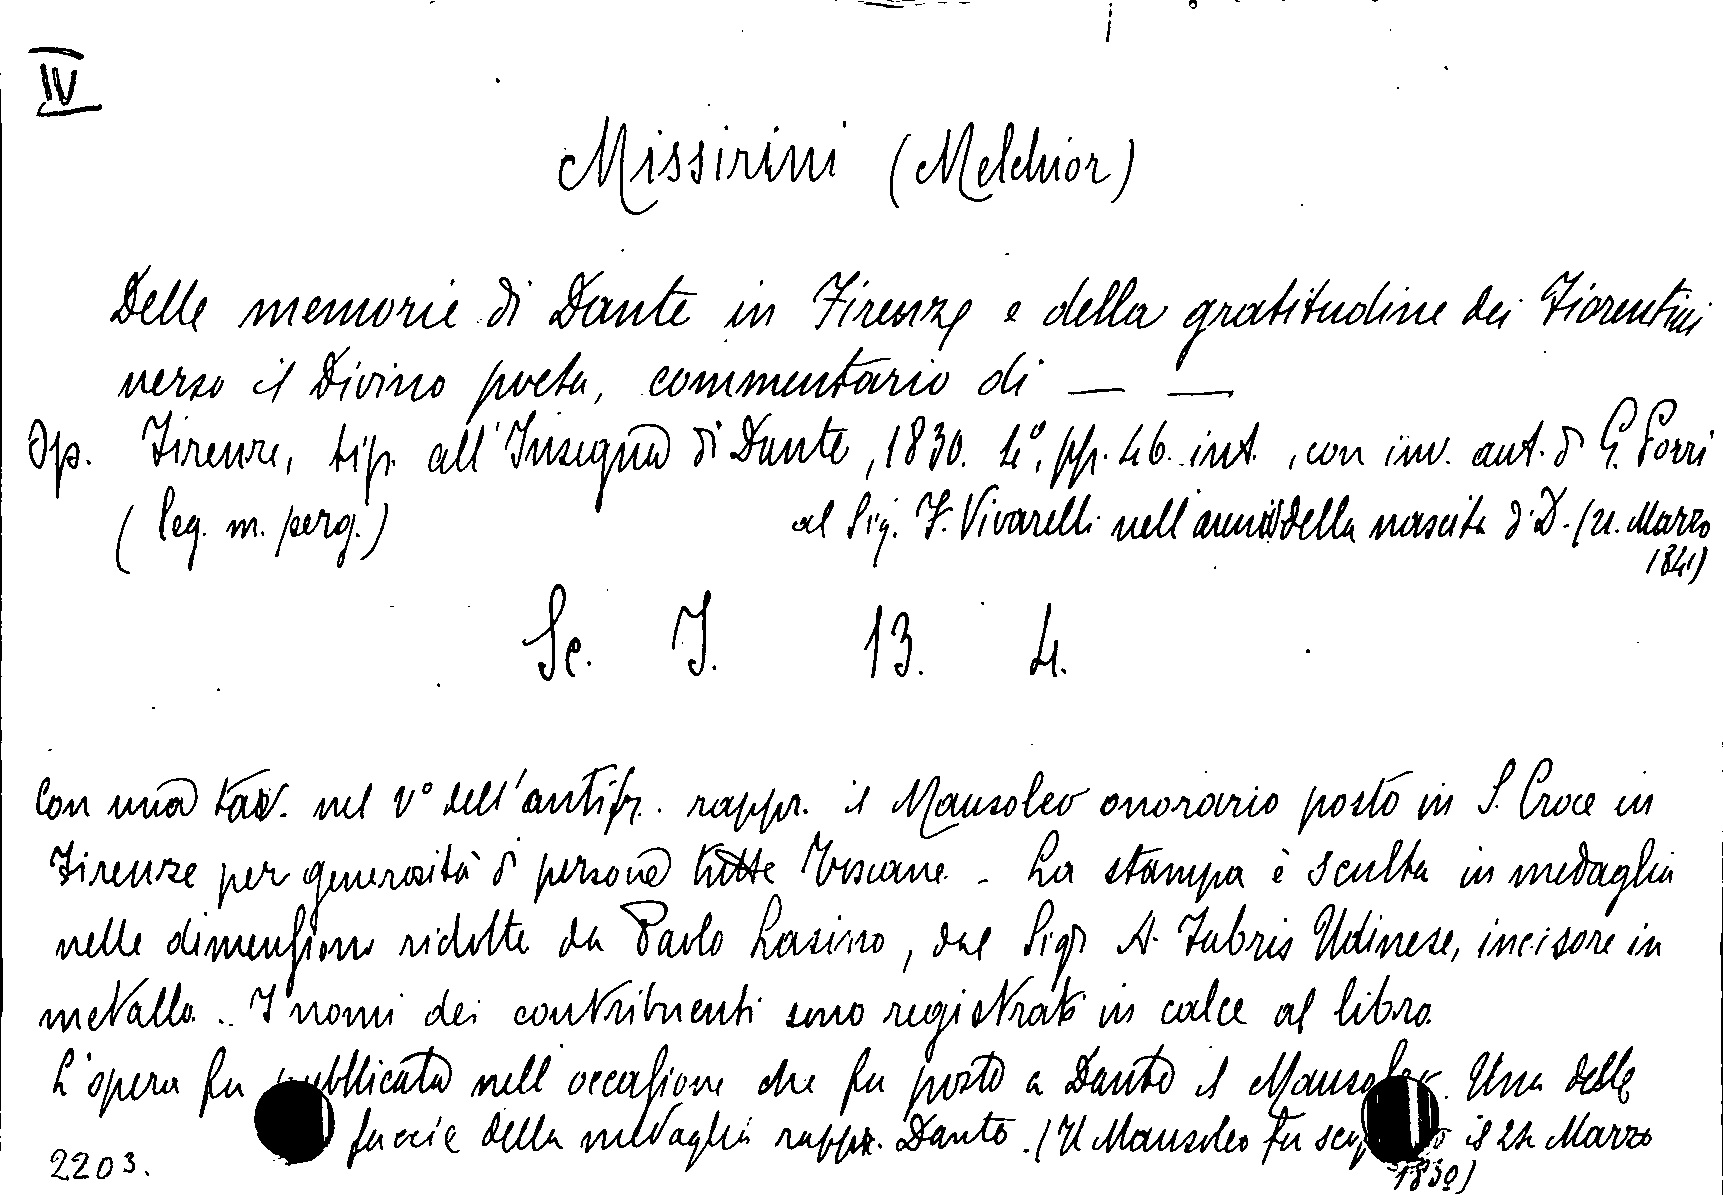 IV
Missirini (Melchior)
Delle memorie di Dante in Firenze e della gratitudine dei Fiorentini
verso il Divino poeta, commentario di — —
Op. Firenze, tip. all'Insegna di Dante, 1830. 4º, pp. 46. int., con inv. aut. di G. Porri
(leg. m. perg.) al Sig. F. Vivarelli nell'anno della nascita di D. (21. Marzo
1841)
Sc. I. 13. 4.
Con una tav. nel vº dell'antifr. rappr. il Mausoleo onorario posto in S. Croce in
Firenze per generosità di persone tutte Toscane. - La stampa è sculta in medaglia
nelle dimensioni ridotte da Paolo Lasinio, dal Sigr A. Fabris Udinese, incisore in
metallo.. I nomi dei contribuenti sono registrati in calce al libro.
L'opera fu pubblicata nell'occasione che fu posto a Dante il Mausoleo. Una delle
faccie della medaglia rappr. Dante. (Il Mausoleo fu il 24 Marzo
1830)
2203.